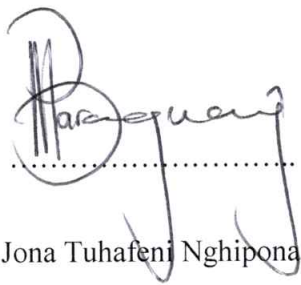 Jona Tuhafeni Nghipona